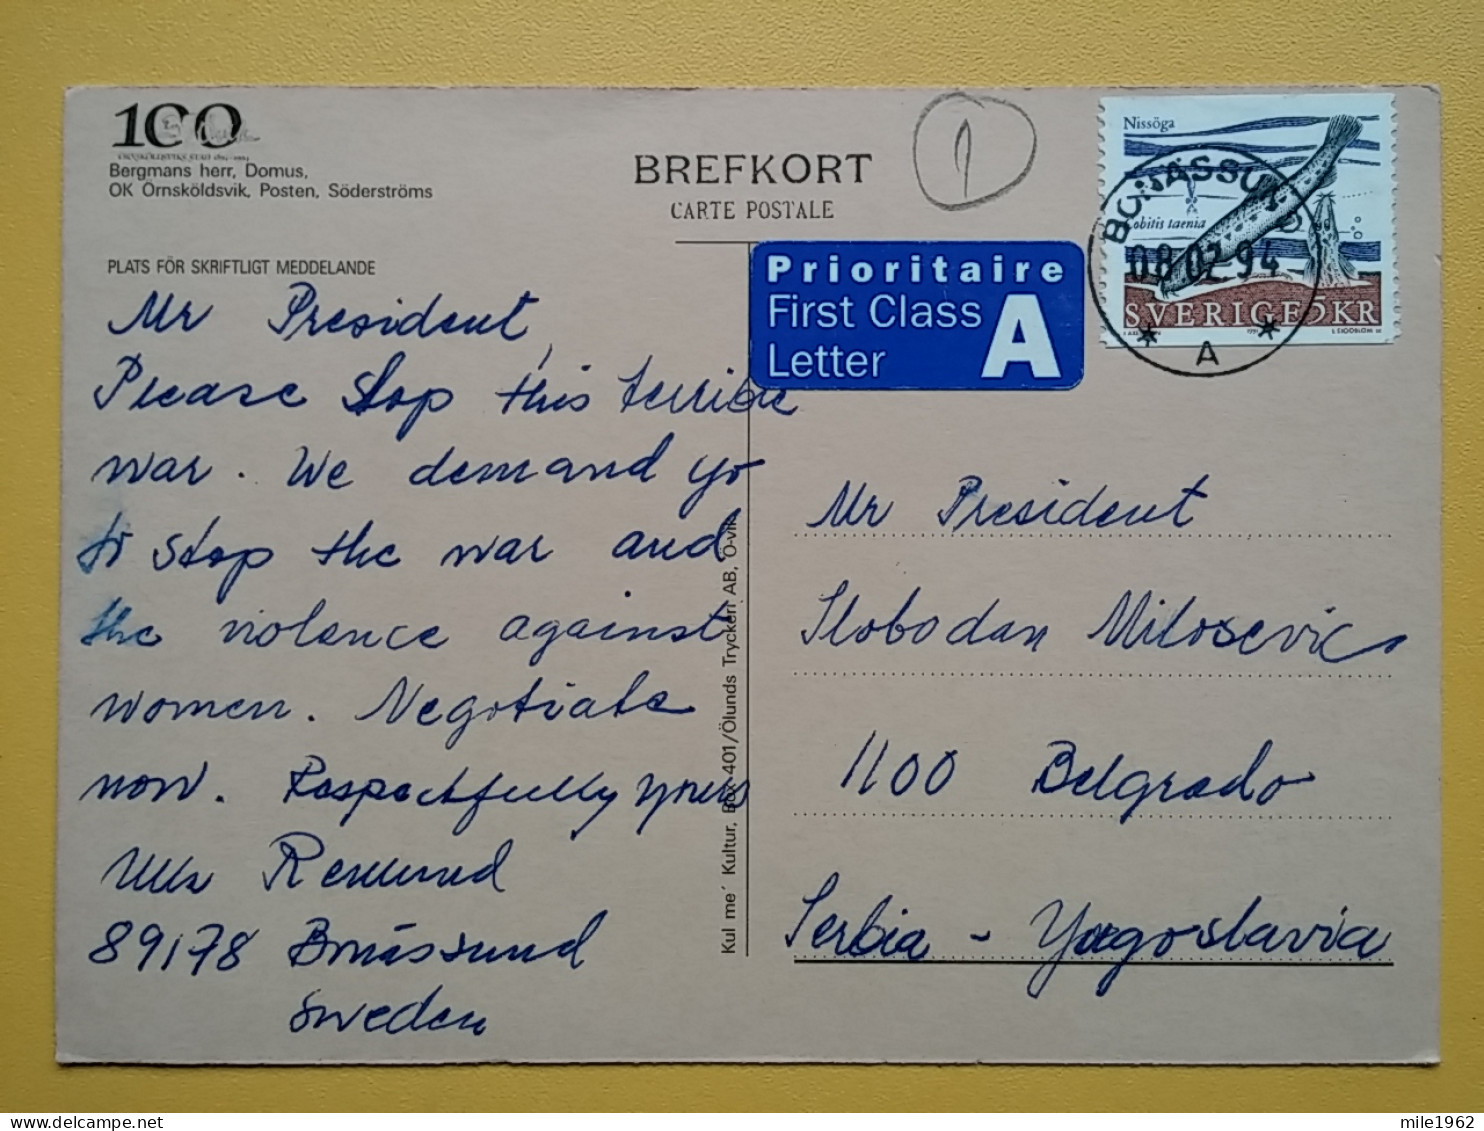 100
Bergmans herr, Domus,
OK Örnsköldsvik, Posten, Söderströms
BREFKORT
CARTE POSTALE
1
PLATS FÖR SKRIFTLIGT MEDDELANDE
Mr President,
Please Stop this terrible
war. We demand yo
to stop the war and
the violence against
women. Negotiate
now. Respectfully yours
Remlund
89178 Bonässund
Sweden
Kul me´ Kultur, Box 401/Ölunds Tryckeri AB, Ö-vik
Prioritaire
First Class
Letter
A
Nissöga
Cobitis taenia
SVERIGE 5KR
BONÄSSUND
08 02 94
* A *
Mr President
Slobodan Milosevic
1100 Belgrado
Serbia - Yogoslavia
mile1962